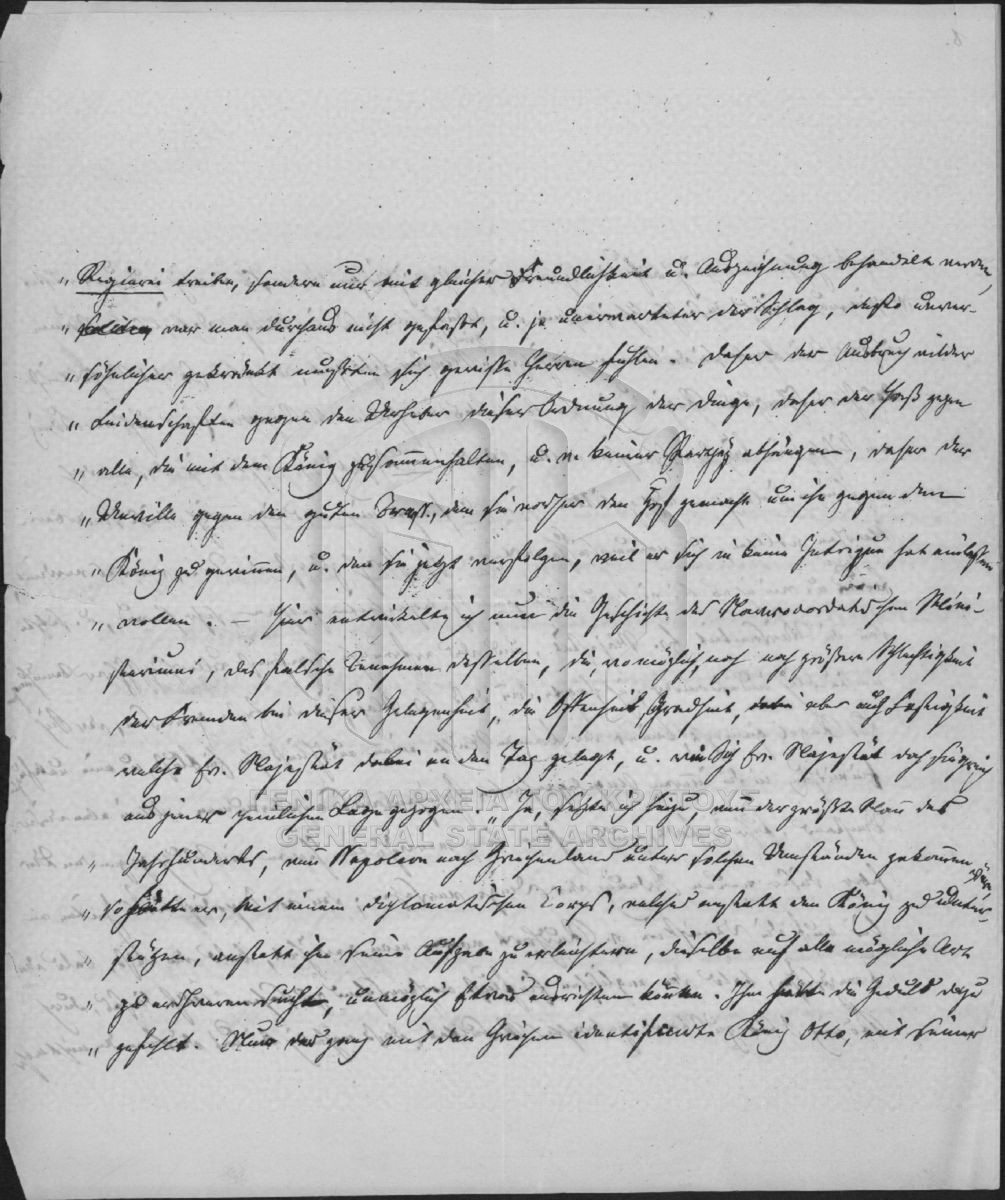 8.
„ Regieren treiben, sondern nur mit gleicher Freundlichkeit u. Auszeichnung behandelt werden
„ war man durchaus nicht gefaßt, u. je unerwarteter der Schlag, desto unver-
„ söhnlicher gekränkt mußten sich gewisse Herren fühlen. Daher der Ausbruch wilder
„ Leidenschaften gegen den Urheber dieser Ordnung der Dinge, daher der Haß gegen
„ alle, die mit dem König zusammenhalten, u. v. keiner Parthey abhängen, daher der
„ Unwille gegen den guten , dem sie vorher den Hof gemacht um ihn gegen den
„ König zu gewinnen, u. den sie jetzt verfolgen, weil er sich in keine Intriguen hat einlassen
„ wollen. — Hier entwickelte ich nun die Geschichte des Mavrocordato'schen Mini-
steriums, das falsche Benehmen desselben, die, womöglich, noch größere Schlechtigkeit
der Fremden bei dieser Gelegenheit, die Offenheit, Gradheit, aber auch Festigkeit
welche Ew. Majestät dabei an den Tag gelegt, u. wie sich Ew. Majestät doch siegreich
aus jener peinlichen Lage gezogen. „Ja, setzte ich hinzu, wenn der größte Mann des
„ Jahrhunderts, ein Napoleon nach Griechenland unter solchen Umständen gekommen wäre,
„ so hätte er, mit einem diplomatischen Corps, welches anstatt den König zu unter-
„ stützen, anstatt ihm seine Aufgabe zu erleichtern, dieselbe auf alle mögliche Art
„ zu erschweren sucht, unmöglich Etwas ausrichten können. Ihm hätte die Geduld dazu
„ gefehlt. Nur der ganz mit den Griechen identificirte König Otto, mit seiner
ΓΕΝΙΚΑ ΑΡΧΕΙΑ ΤΟΥ ΚΡΑΤΟΥΣ
GENERAL STATE ARCHIVES